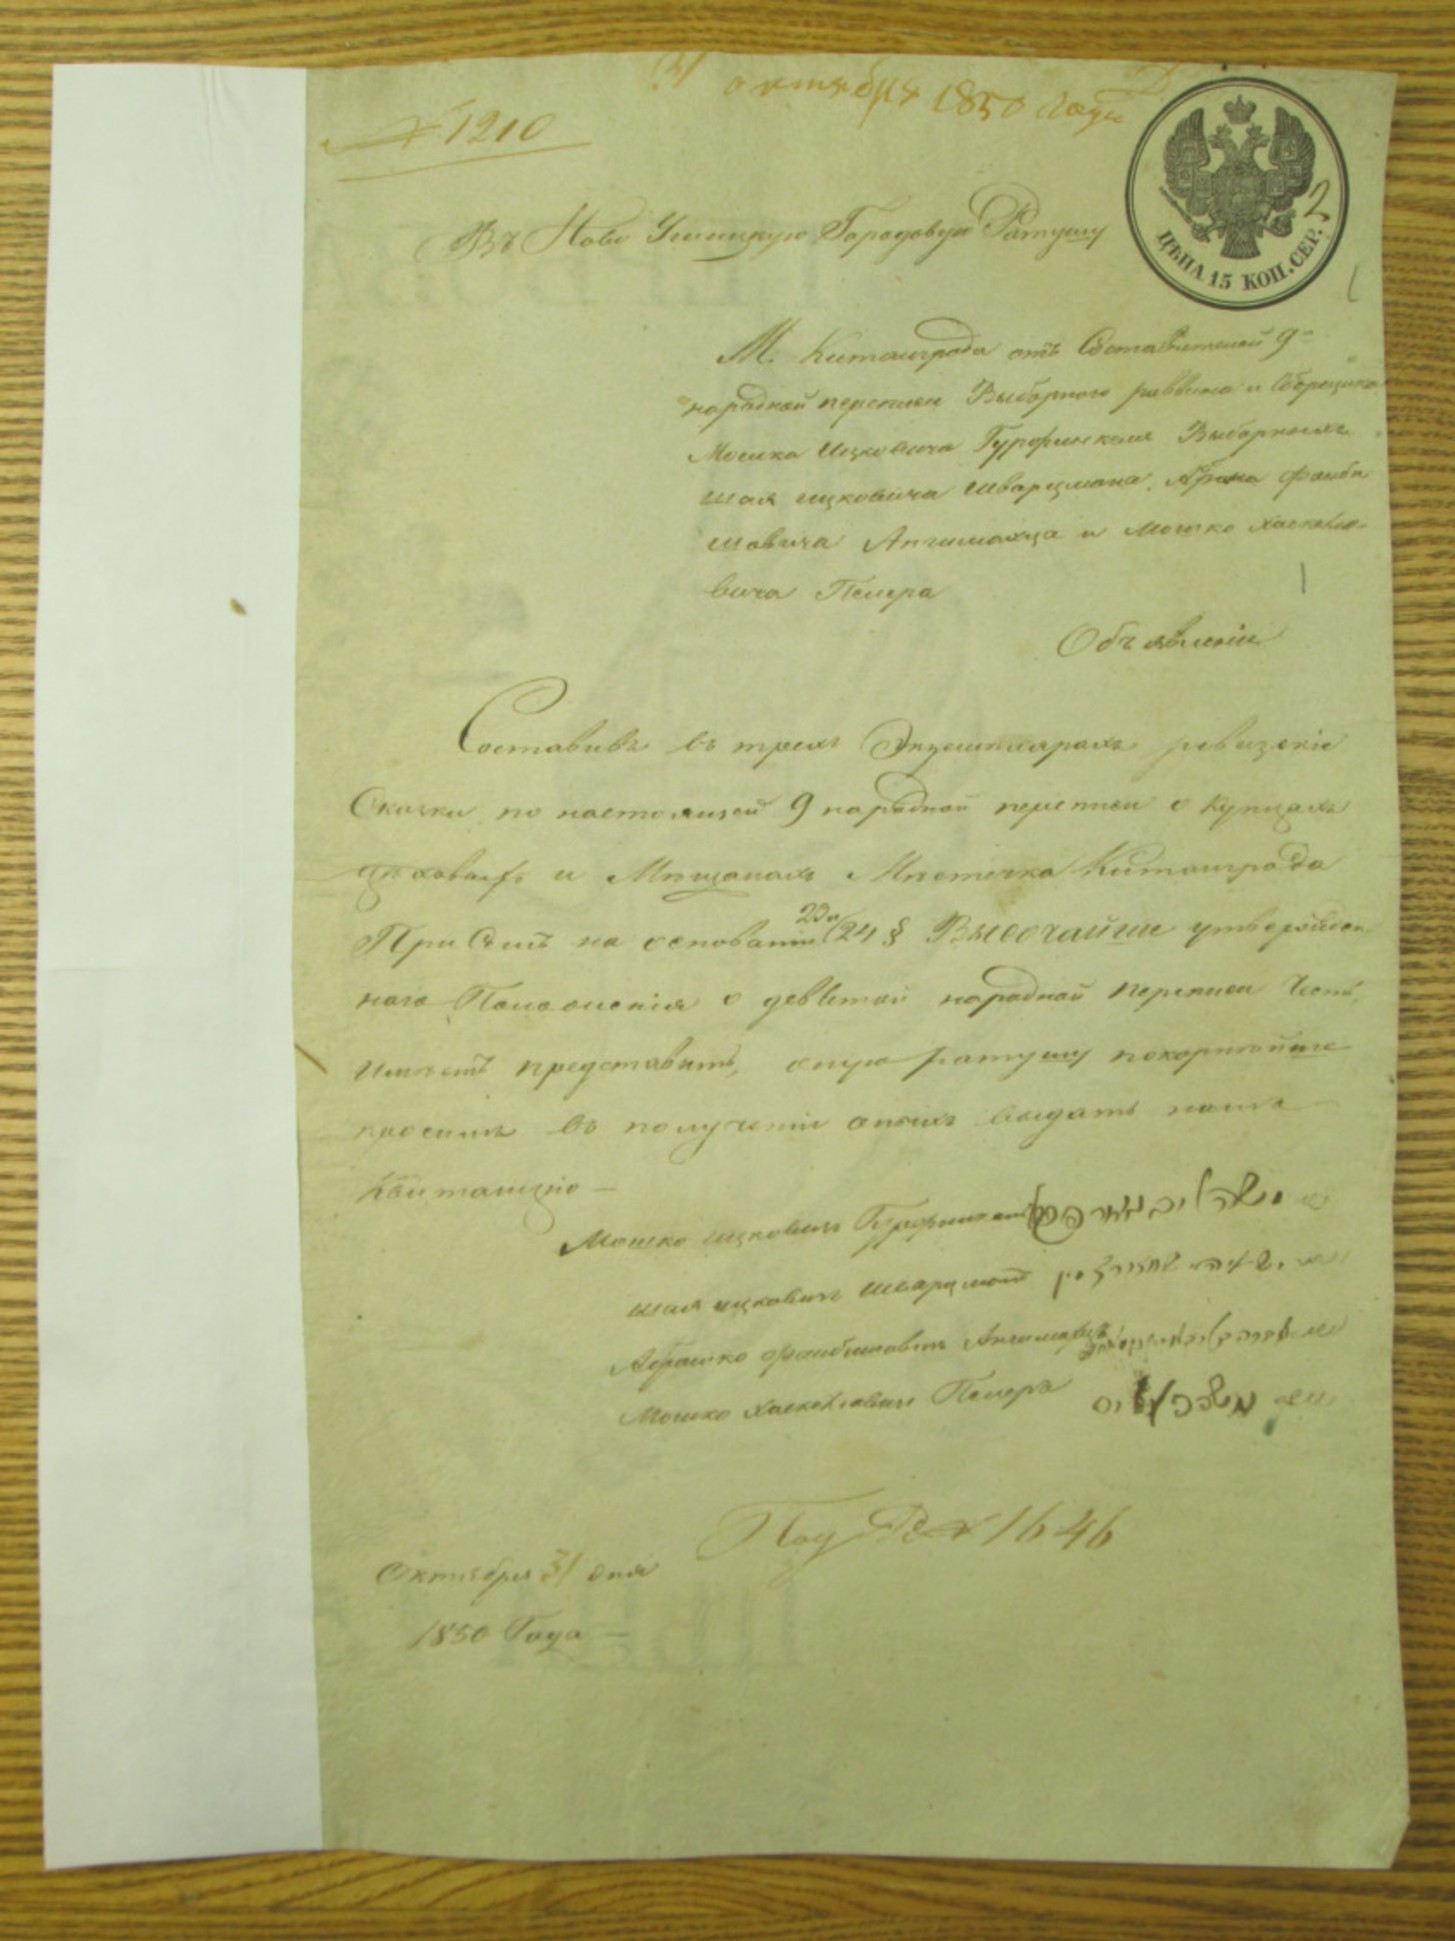 31 октября 1850 года
№ 1210
2
ЦѢНА 15 КОП. СЕР.
Въ Ново Ушицкую Городовую Ратушу
М. Китайграда отъ Составителей 9й
народной переписи Выборного раввина и Сборщика
Мошка Ицковича Гурфинкеля Выборныхъ
Шая Ицковича Шварцмана, Абрама Файби
шовича Ангимахца и Мошко Хаскеле-
вича Пелера
Объявленіе
Составивъ въ трехъ Экземплярахъ ревизскіе
Сказки по настоящей 9 народной переписи о Купцахъ
цеховыхъ и Мѣщанахъ Мѣстечка Китайграда
При Семъ на основаніи 23 и 24 § Высочайше утвержден
наго Положенія о девятой народной переписи Честь
имѣемъ представить, оную ратушу покорнѣйше
просимъ въ полученіи оныхъ выдать намъ
Квитанцію —
Мошко Ицковичъ Гурфинкель
Шая Ицковичъ Шварцманъ
Абрашко Файбишовичъ Ангимахцъ
Мошко Хаскелевичъ Пелеръ
Под № 1646
Октября 31 дня
1850 Года —